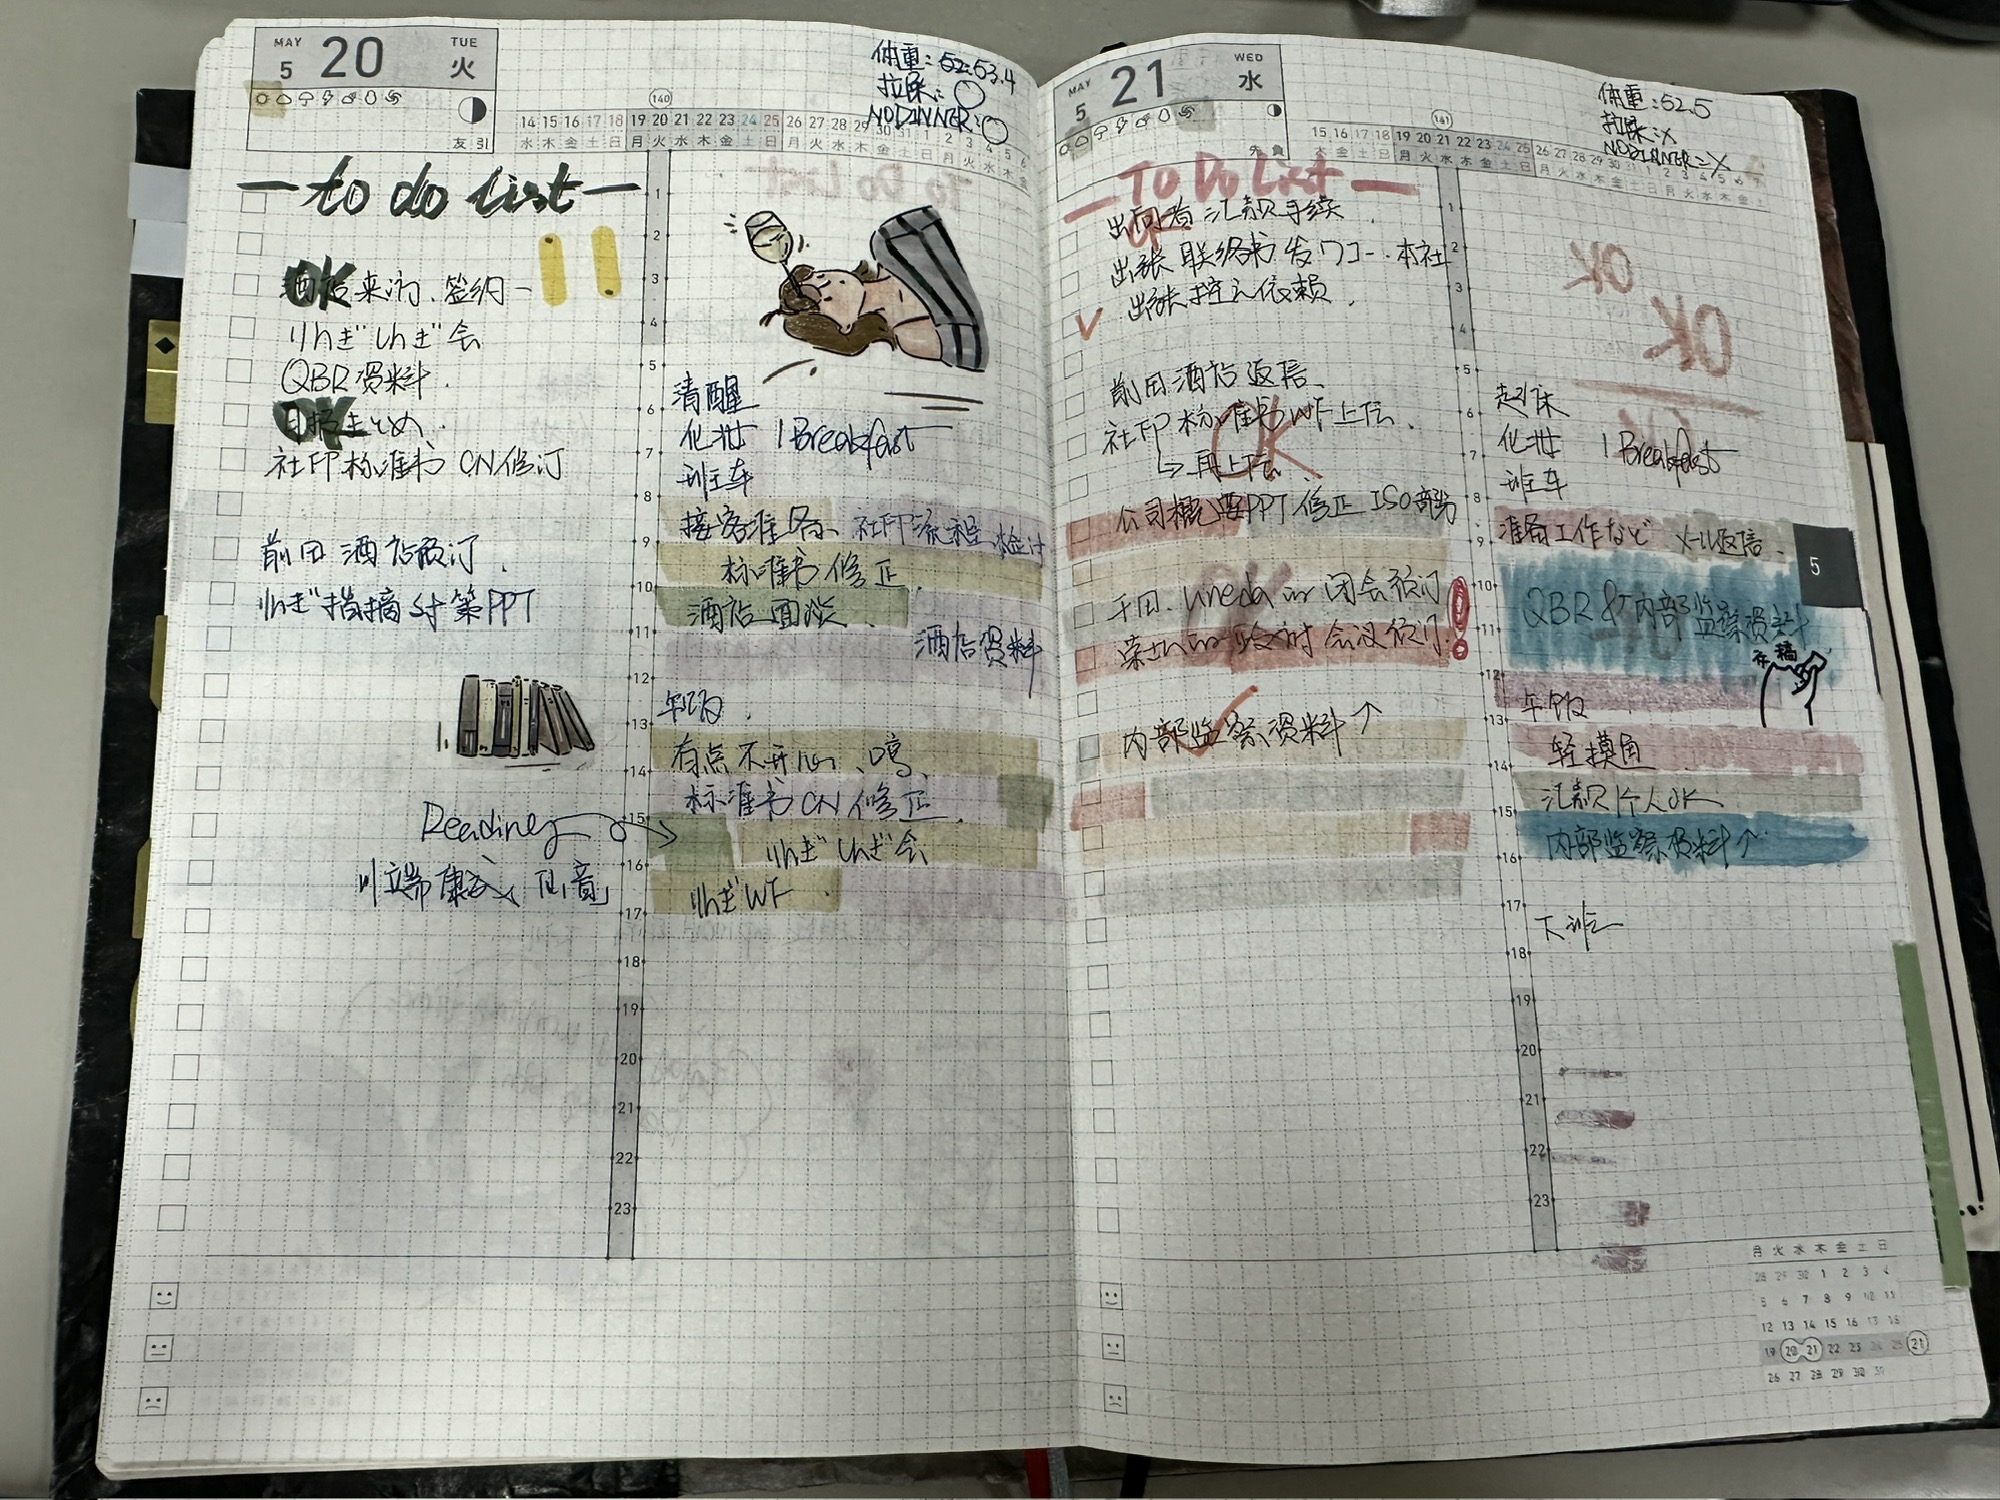 MAY
5
20
TUE
火
友引
体重:52.53.4
拉屎:○
NODINNER:○
140
14 15 16 17 18 19 20 21 22 23 24 25 26 27 28 29 30 31 1 2 3 4 5 6
水 木 金 土 日 月 火 水 木 金 土 日 月 火 水 木 金 土 日 月 火 水 木 金
to do list
OK
酒店来访、签约
りんぎしんぎ会
QBR资料.
OK
日報まとめ
社印标准书 CN修订
前田 酒店预订.
りんぎ指摘対策PPT
Reading
川端康成
1
2
3
4
5
6
7
8
9
10
11
12
13
14
15
16
17
18
19
20
21
22
23
清醒
化妆 | Breakfast
班车
接客准备、社印流程检讨
标准书修正
酒店面谈
酒店资料
午饭.
有点不开心、
标准书CN修正.
りんぎしんぎ会
りんぎWF.
MAY
5
21
WED
水
先負
体重:52.5
拉屎:×
NODINNER=×
141
15 16 17 18 19 20 21 22 23 24 25 26 27 28 29 30 31 1 2 3 4 5 6 7
木 金 土 日 月 火 水 木 金 土 日 月 火 水 木 金 土 日 月 火 水 木 金 土
To Do List
出向者 汇款手续.
OK
出張联络书发フロー.本社
出张控え依赖.
前田酒店返信.
社印标准书WF上传.
OK
→再上传
公司概要PPT修正ISO部分
会议预订
内部监察资料↑
1
2
3
4
5
6
7
8
9
10
11
12
13
14
15
16
17
18
19
20
21
22
23
起床
化妆 | Breakfast
班车
准备工作など メール返信.
QBR &内部监察资料
午饭
轻摸鱼
汇款个人OK
内部监察资料↑
下班
5
月 火 水 木 金 土 日
28 29 30 1 2 3 4
5 6 7 8 9 10 11
12 13 14 15 16 17 18
19 20 21 22 23 24 25 21
26 27 28 29 30 31